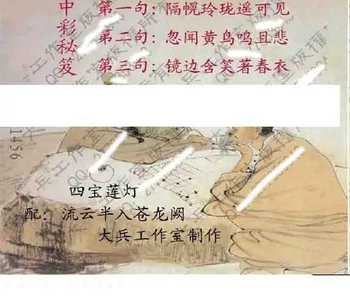 中彩秘笈
第一句：隔幌玲珑遥可见
第二句：忽闻黄鸟鸣且悲
第三句：镜边含笑著春衣
四宝莲灯
配：流云半入苍龙阙
大兵工作室制作